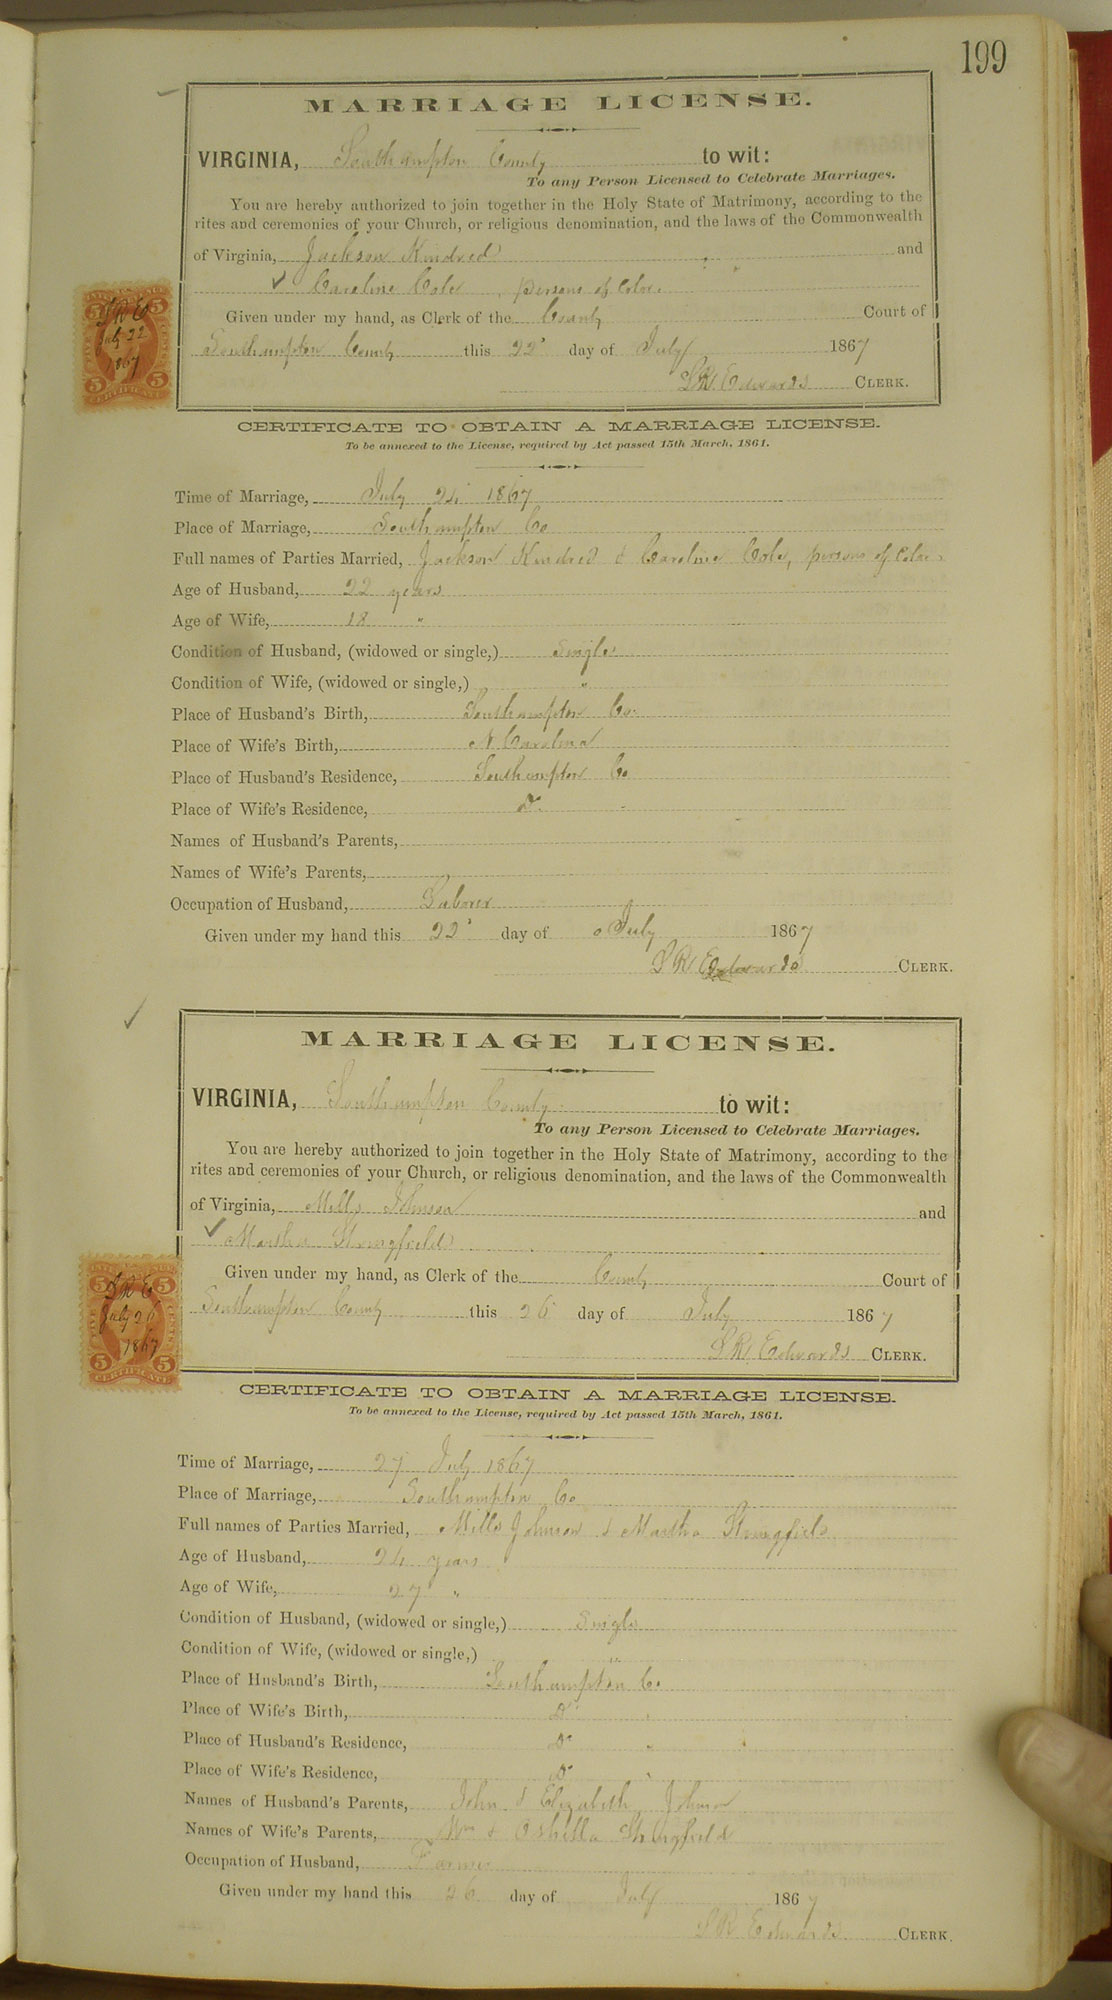 199
MARRIAGE LICENSE.
VIRGINIA, Southampton County to wit:
To any Person Licensed to Celebrate Marriages.
You are hereby authorized to join together in the Holy State of Matrimony, according to the
rites and ceremonies of your Church, or religious denomination, and the laws of the Commonwealth
of Virginia, Jackson Kindred and
Caroline Cole, persons of Color.
Given under my hand, as Clerk of the County Court of
Southampton County this 22 day of July 1867
L R Edwards CLERK.
5 5
L R E
July 22
1867
5 5
CERTIFICATE
CERTIFICATE TO OBTAIN A MARRIAGE LICENSE.
To be annexed to the License, required by Act passed 15th March, 1861.
Time of Marriage, July 24 1867
Place of Marriage, Southampton Co
Full names of Parties Married, Jackson Kindred & Caroline Cole, persons of Color
Age of Husband, 22 years
Age of Wife, 18 "
Condition of Husband, (widowed or single,) Single
Condition of Wife, (widowed or single,) "
Place of Husband's Birth, Southampton Co.
Place of Wife's Birth, N. Carolina
Place of Husband's Residence, Southampton Co
Place of Wife's Residence, Do
Names of Husband's Parents,
Names of Wife's Parents,
Occupation of Husband, Laborer
Given under my hand this 22 day of July 1867
L R Edwards CLERK.
MARRIAGE LICENSE.
VIRGINIA, Southampton County to wit:
To any Person Licensed to Celebrate Marriages.
You are hereby authorized to join together in the Holy State of Matrimony, according to the
rites and ceremonies of your Church, or religious denomination, and the laws of the Commonwealth
of Virginia, Mills Johnson and
Martha Stringfield
Given under my hand, as Clerk of the County Court of
Southampton County this 26 day of July 1867
L R Edwards CLERK.
5 5
L R E
July 26
1867
5 5
CERTIFICATE
CERTIFICATE TO OBTAIN A MARRIAGE LICENSE.
To be annexed to the License, required by Act passed 15th March, 1861.
Time of Marriage, 27 July 1867
Place of Marriage, Southampton Co
Full names of Parties Married, Mills Johnson & Martha Stringfield
Age of Husband, 24 years
Age of Wife, 27 "
Condition of Husband, (widowed or single,) Single
Condition of Wife, (widowed or single,) "
Place of Husband's Birth, Southampton Co
Place of Wife's Birth, Do "
Place of Husband's Residence, Do "
Place of Wife's Residence, Do "
Names of Husband's Parents, John & Elizabeth Johnson
Names of Wife's Parents, Wm & Stringfield
Occupation of Husband, Farmer
Given under my hand this 26 day of July 1867
L R Edwards CLERK.